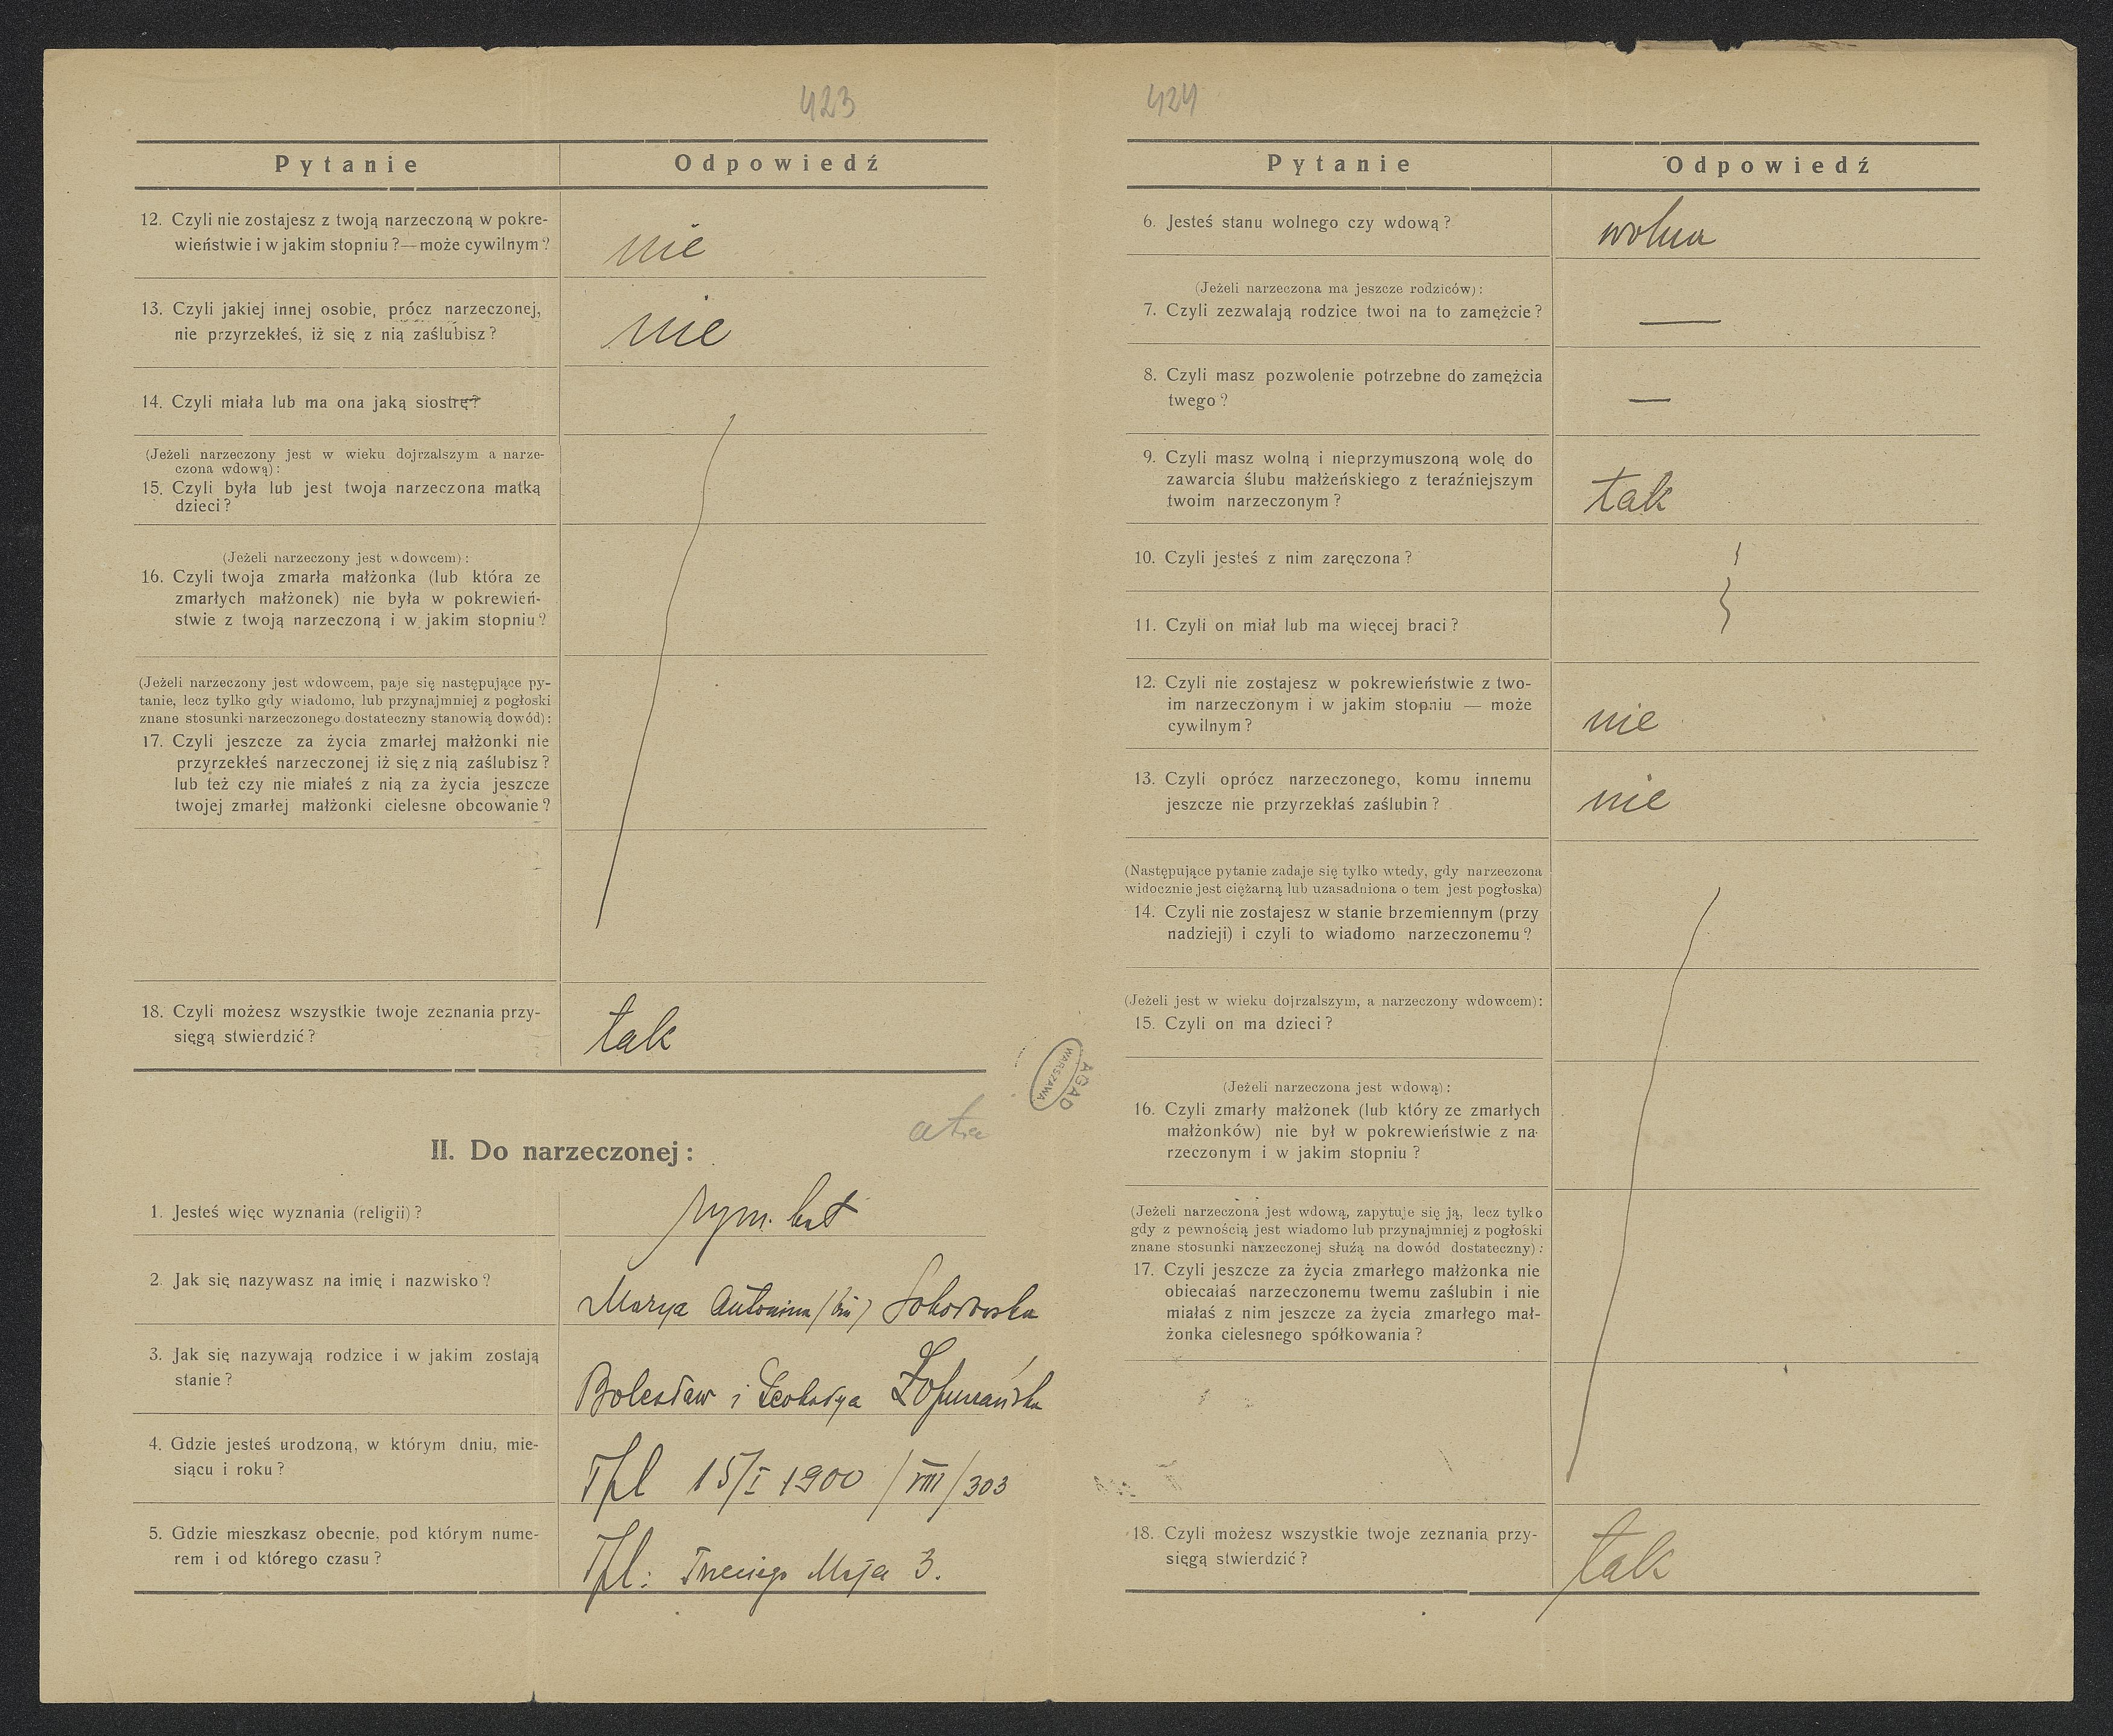 423
Pytanie Odpowiedź
12. Czyli nie zostajesz z twoją narzeczoną w pokre-
wieństwie i w jakim stopniu ?—może cywilnym ?
nie
13. Czyli jakiej innej osobie, prócz narzeczonej,
nie przyrzekłeś, iż się z nią zaślubisz ?
nie
14. Czyli miała lub ma ona jaką siostrę ?
(Jeżeli narzeczony jest w wieku dojrzalszym a narze-
czona wdową) :
15. Czyli była lub jest twoja narzeczona matką
dzieci ?
(Jeżeli narzeczony jest wdowcem) :
16. Czyli twoja zmarła małżonka (lub która ze
zmarłych małżonek) nie była w pokrewień-
stwie z twoją narzeczoną i w jakim stopniu ?
(Jeżeli narzeczony jest wdowcem, paje się następujące py-
tanie, lecz tylko gdy wiadomo, lub przynajmniej z pogłoski
znane stosunki narzeczonego dostateczny stanowią dowód) :
17. Czyli jeszcze za życia zmarłej małżonki nie
przyrzekłeś narzeczonej iż się z nią zaślubisz ?
lub też czy nie miałeś z nią za życia jeszcze
twojej zmarłej małżonki cielesne obcowanie ?
18. Czyli możesz wszystkie twoje zeznania przy-
sięgą stwierdzić ?
tak
II. Do narzeczonej :
1. Jesteś więc wyznania (religii) ?
rym. kat
2. Jak się nazywasz na imię i nazwisko ?
Marya Antonina (im) Sokorowska
3. Jak się nazywają rodzice i w jakim zostają
stanie ?
Bolesław i Leokadya
4. Gdzie jesteś urodzoną, w którym dniu, mie-
siącu i roku ?
Tpl 15/I 1900 /VIII/303
5. Gdzie mieszkasz obecnie, pod którym nume-
rem i od którego czasu ?
Tpl: Trzeciego Maja 3.
AGAD
WARSZAWA
424
Pytanie Odpowiedź
6. Jesteś stanu wolnego czy wdową ?
wolna
(Jeżeli narzeczona ma jeszcze rodziców) :
7. Czyli zezwalają rodzice twoi na to zamężcie ?
—
8. Czyli masz pozwolenie potrzebne do zamężcia
twego ?
—
9. Czyli masz wolną i nieprzymuszoną wolę do
zawarcia ślubu małżeńskiego z teraźniejszym
twoim narzeczonym ?
tak
10. Czyli jesteś z nim zaręczona ?
11. Czyli on miał lub ma więcej braci ?
12. Czyli nie zostajesz w pokrewieństwie z two-
im narzeczonym i w jakim stopniu — może
cywilnym ?
nie
13. Czyli oprócz narzeczonego, komu innemu
jeszcze nie przyrzekłaś zaślubin ?
nie
(Następujące pytanie zadaje się tylko wtedy, gdy narzeczona
widocznie jest ciężarną lub uzasadniona o tem jest pogłoska)
14. Czyli nie zostajesz w stanie brzemiennym (przy
nadzieji) i czyli to wiadomo narzeczonemu ?
(Jeżeli jest w wieku dojrzalszym, a narzeczony wdowcem) :
15. Czyli on ma dzieci ?
(Jeżeli narzeczona jest wdową) :
16. Czyli zmarły małżonek (lub który ze zmarłych
małżonków) nie był w pokrewieństwie z na-
rzeczonym i w jakim stopniu ?
(Jeżeli narzeczona jest wdową, zapytuje się ją, lecz tylko
gdy z pewnością jest wiadomo lub przynajmniej z pogłoski
znane stosunki narzeczonej służą na dowód dostateczny) :
17. Czyli jeszcze za życia zmarłego małżonka nie
obiecałaś narzeczonemu twemu zaślubin i nie
miałaś z nim jeszcze za życia zmarłego mał-
żonka cielesnego spółkowania ?
18. Czyli możesz wszystkie twoje zeznania przy-
sięgą stwierdzić ?
tak